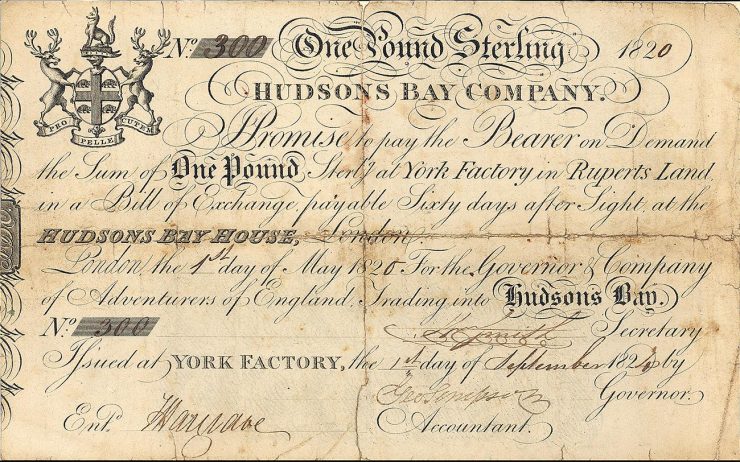 No. 300 One Pound Sterling 1820
HUDSONS BAY COMPANY.
PRO PELLE CUTEM
I Promise to pay the Bearer on Demand
the Sum of One Pound Sterlg. at York Factory in Ruperts Land
in a Bill of Exchange, payable Sixty days after Sight, at the
HUDSONS BAY HOUSE, London.
London, the 1st. day of May 1820 For the Governor & Company
of Adventurers of England, Trading into Hudsons Bay.
No. 300 Smith Secretary
Issued at YORK FACTORY, the 1st day of September 182 by
Geo Simpson Governor.
Entd. JHargrave Accountant.